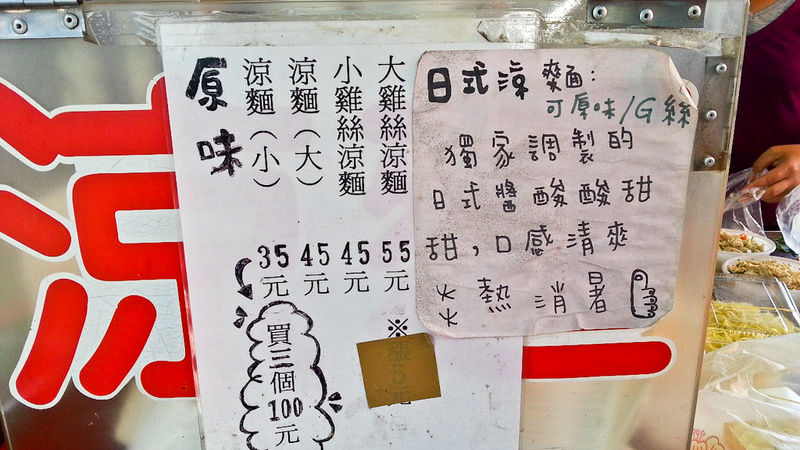 涼
原味
涼麵（小） 35元
涼麵（大） 45元
小雞絲涼麵 45元
大雞絲涼麵 55元
買三個100元
※漲5元
日式涼麵:
可原味/G絲
獨家調製的
日式醬酸酸甜
甜,口感清爽
熱消暑